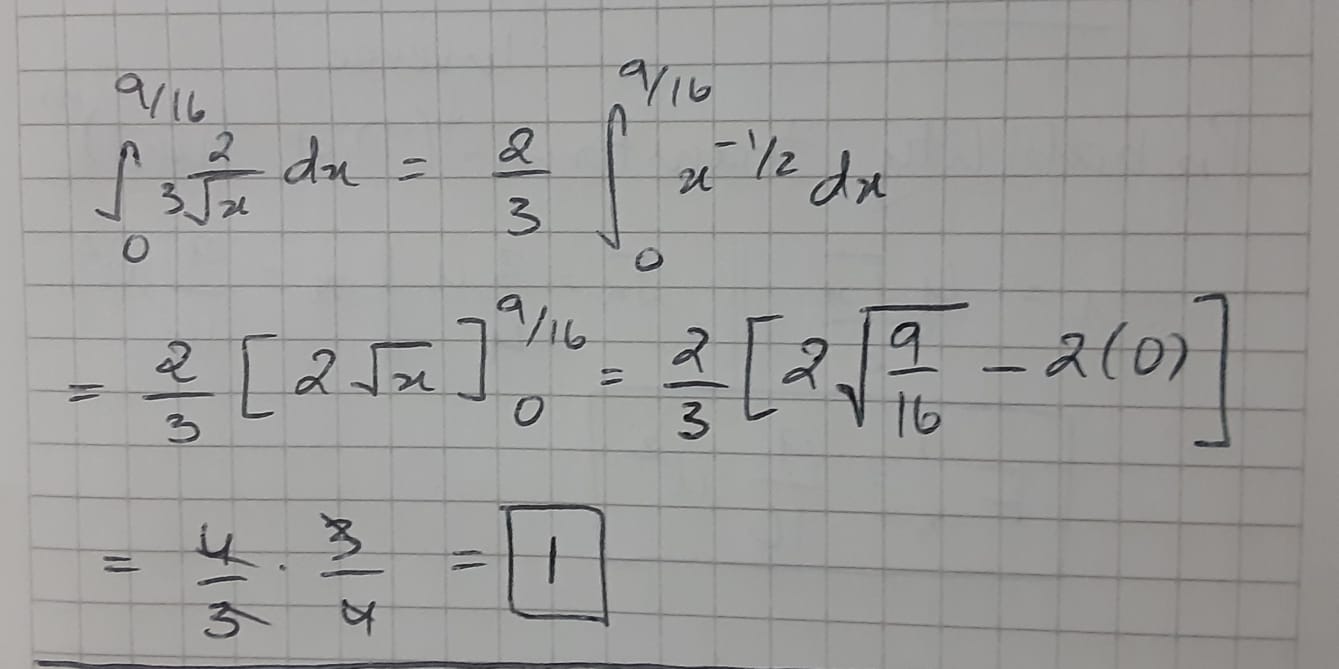 ∫₀^{9/16} 2/(3√x) dx = 2/3 ∫₀^{9/16} x^{-1/2} dx
= 2/3 [2√x]₀^{9/16} = 2/3 [2√(9/16) - 2(0)]
= 4/3 · 3/4 = 1